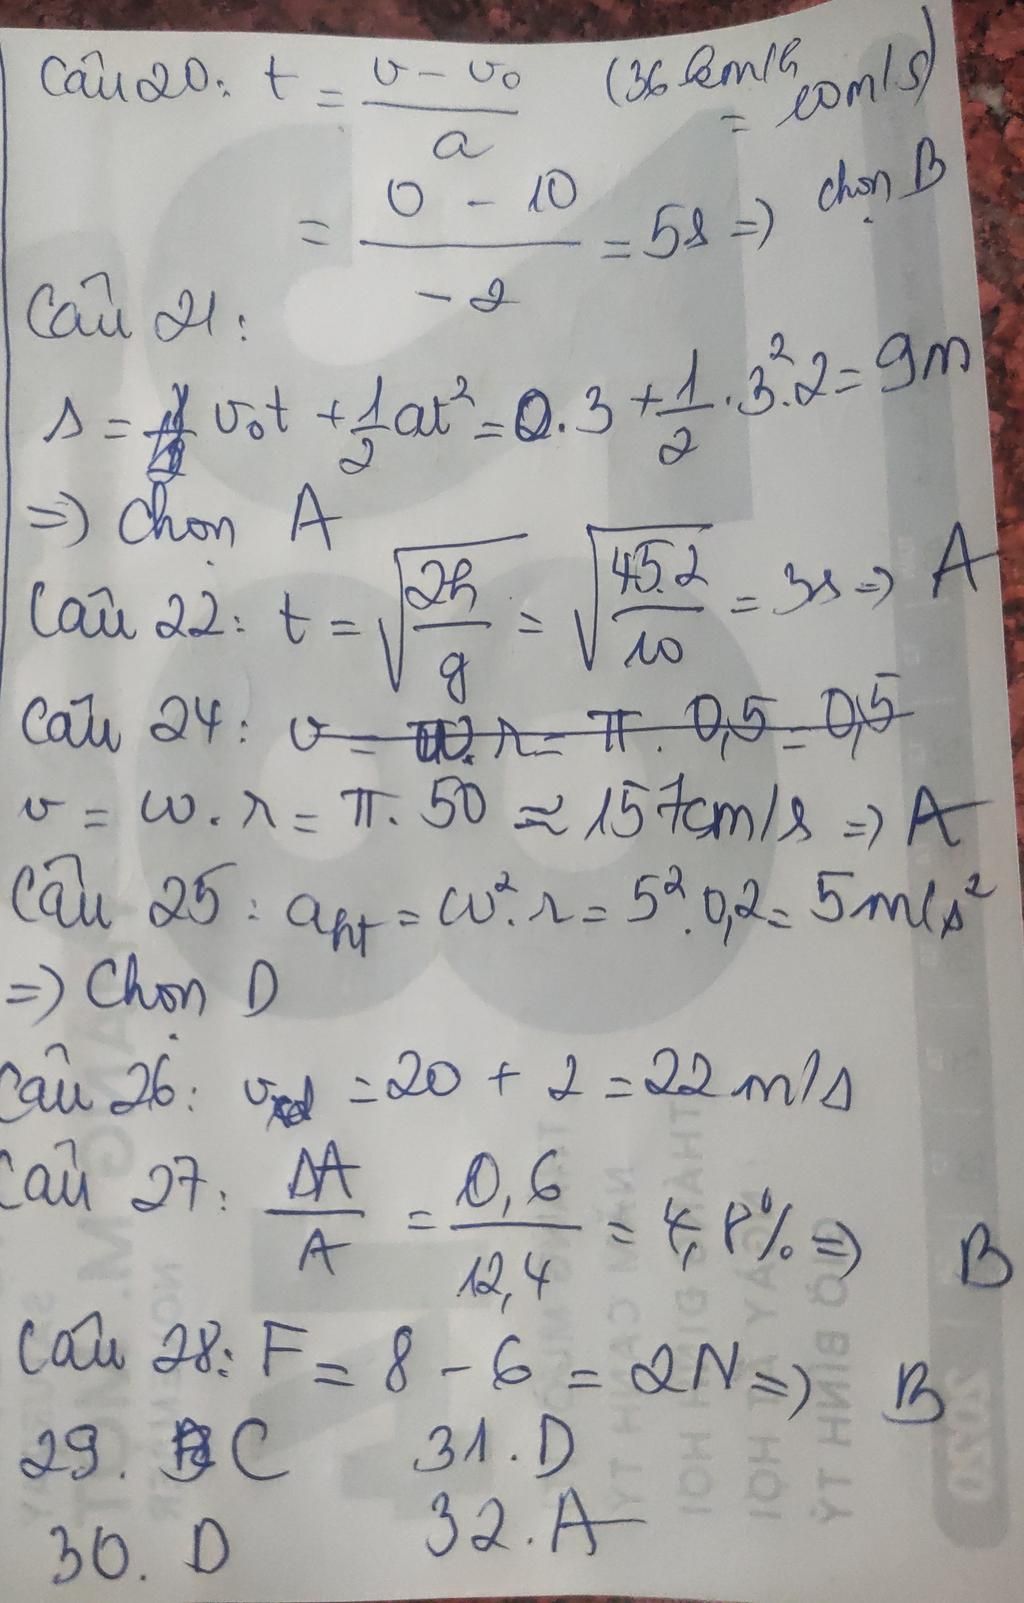 Câu 20: t = (v - v₀)/a (36 km/h
= 10m/s)
= (0 - 10)/(-2) = 5s => chọn B
Câu 21:
s = v₀t + 1/2 at² = 0.3 + 1/2 . 3².2 = 9m
=> Chọn A
Câu 22: t = √(2h/g) = √(45.2/10) = 3s => A
Câu 24: v = ω. r = π. 0,5 = 0,5
v = ω. r = π. 50 ≈ 157cm/s => A
Câu 25: aₕₜ = ω². r = 5². 0,2 = 5m/s²
=> Chọn D
Câu 26: v = 20 + 2 = 22 m/s
Câu 27: ΔA/A = 0,6/12,4 = 4,8% => B
Câu 28: F = 8 - 6 = 2N => B
29. C 31. D
30. D 32. A